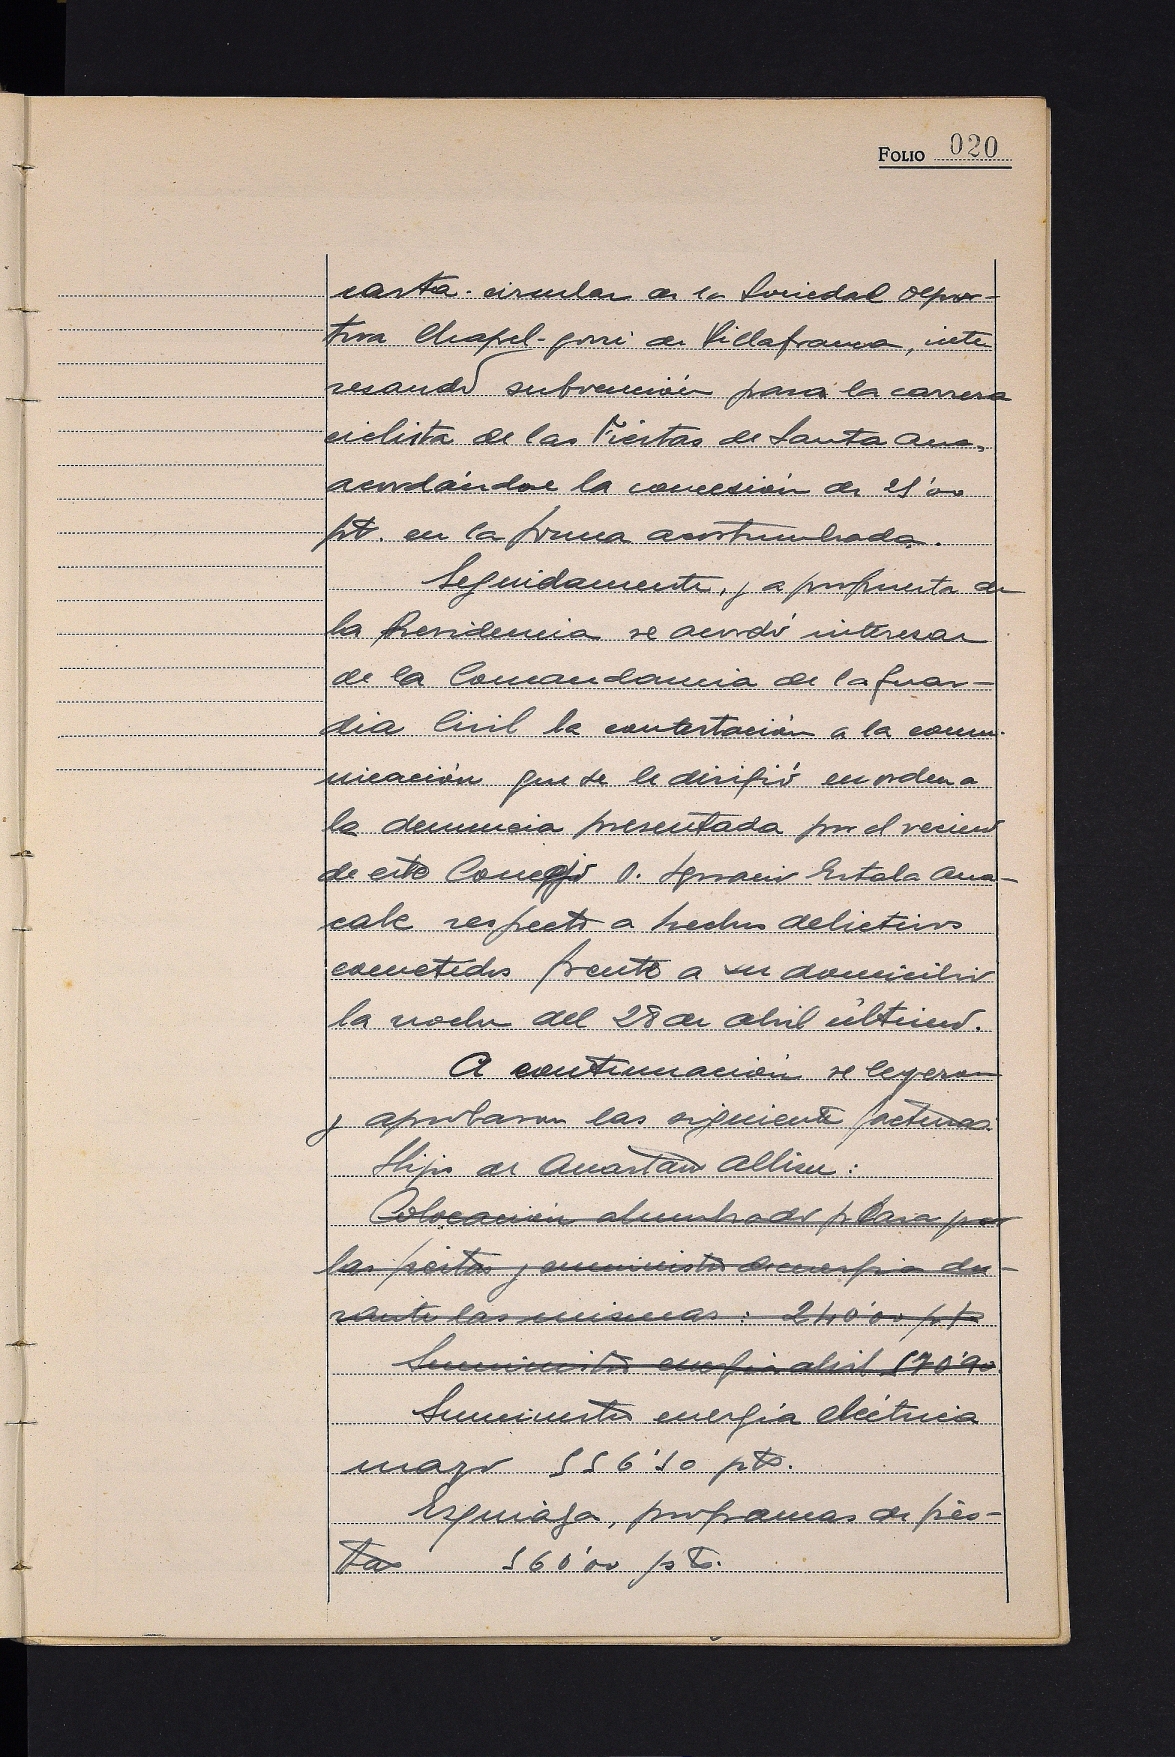 FOLIO 020
carta-circular de la Sociedad Depor-
tiva Chapel-gorri de Villafranca, inte
resando subvención para la carrera
ciclista de las Fiestas de Santa Ana,
acordándose la concesión de 25'00
pts. en la forma acostumbrada.
Seguidamente, y a propuesta de
la Presidencia se acordó interesar
de la Comandancia de la Guar-
dia Civil la contestación a la comu-
nicación que se le dirigió en orden a
la denuncia presentada por el vecino
de este Concejo D. Ignacio Estala
respecto a hechos delictivos
cometidos frente a su domicilio
la noche del 28 de abril último.
A continuación se leyeron
y aprobaron las siguientes facturas:
Hijos de Anastasio :
Colocación alumbrado plaza por
las fiestas y suministro de energía du-
rante las mismas: 240'00 pts
Suministro energía abril 570'90
Suministro energía eléctrica
mayo 556'50 pts.
programas de fies-
tas 560'00 pts.